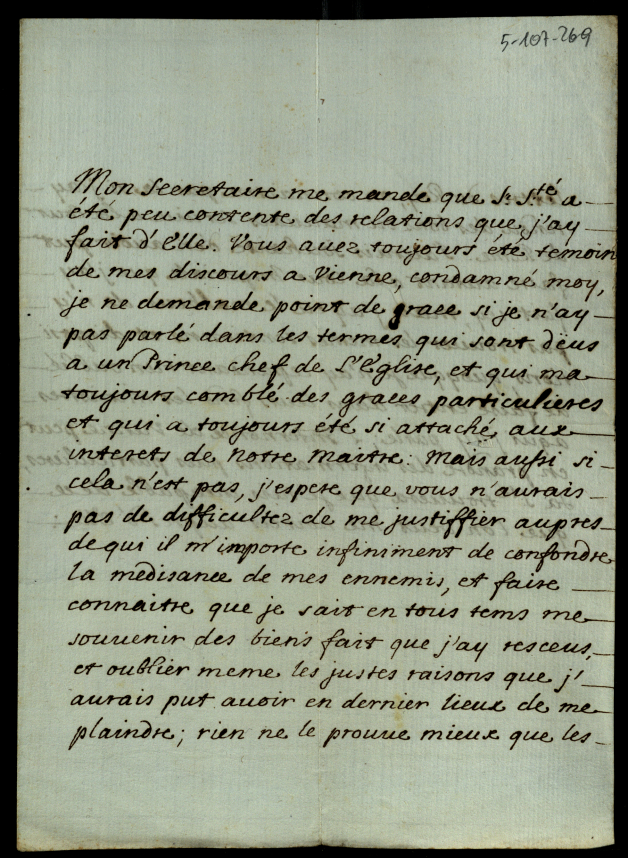 5-107-269
Mon Secretaire me mande que S. S.té a
été peu contente des relations que j'ay
fait d'Elle. Vous avez toujours été temoin
de mes discours a Vienne, condamné moy,
je ne demande point de grace si je n'ay
pas parlé dans les termes qui sont dëus
a un Prince chef de L'Eglise, et qui ma
toujours comblé des graces particulieres
et qui a toujours été si attaché aux
interets de Notre Maitre. Mais aussi si
cela n'est pas, j'espere que vous n'aurais
pas de difficultez de me justiffier aupres
de qui il m'importe infiniment de confondre
la medisance de mes ennemis, et faire
connaitre que je sait en tous tems me
souvenir des biens fait que j'ay resceus,
et oublier meme les justes raisons que j'
aurais put avoir en dernier lieux de me
plaindre; rien ne le prouve mieux que les